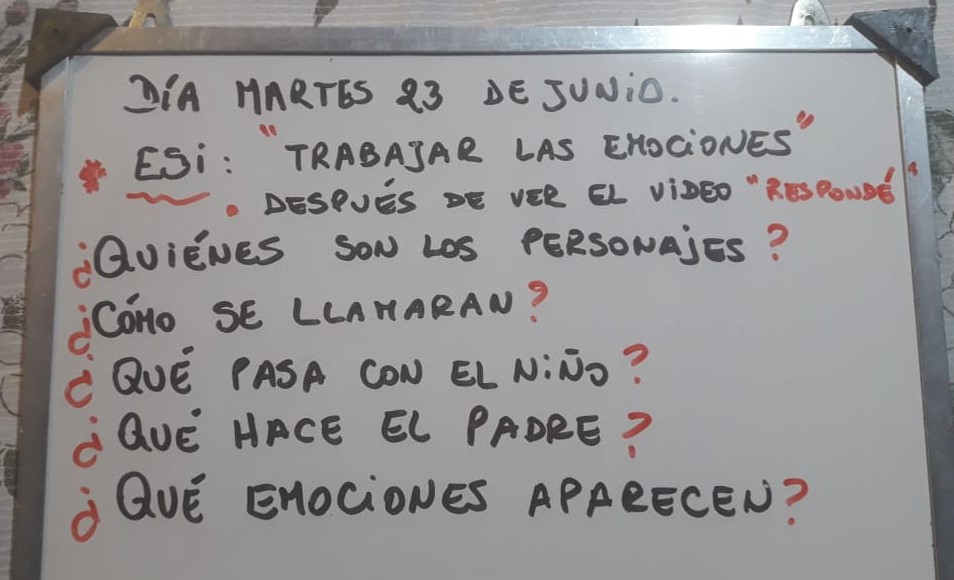 DÍA MARTES 23 DE JUNIO.
* ESI: "TRABAJAR LAS EMOCIONES"
. DESPUÉS DE VER EL VIDEO "RESPONDÉ"
¿QUIÉNES SON LOS PERSONAJES?
¿CÓMO SE LLAMARAN?
¿QUÉ PASA CON EL NIÑO?
¿QUÉ HACE EL PADRE?
¿QUÉ EMOCIONES APARECEN?